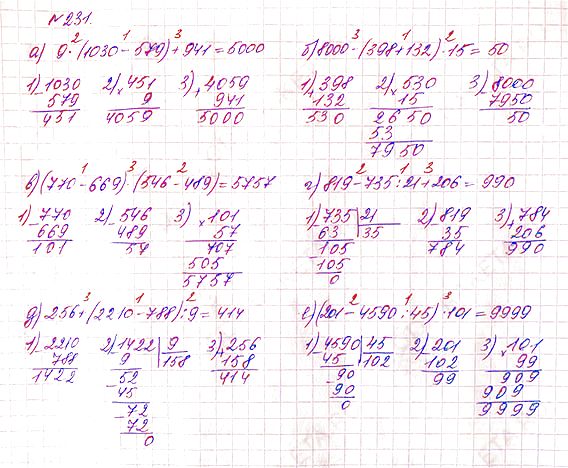 №231.
2 1 3
а) 9·(1030-579)+941=5000
3 1 2
б) 8000-(398+132)·15=50
1) 1030 2) 451 3) 4059
- 579 × 9 + 941
451 4059 5000
1) 398 2) 530 3) 8000
+ 132 × 15 - 7950
530 2650 50
53
7950
1 3 2
в) (770-669)·(546-489)=5757
2 1 3
г) 819-735:21+206=990
1) 770 2) 546 3) 101
- 669 - 489 × 57
101 57 707
505
5757
1) 735 | 21 2) 819 3) 784
- 63 | 35 - 35 + 206
105 784 990
- 105
0
3 1 2
д) 256+(2210-788):9=414
2 1 3
е) (201-4590:45)·101=9999
1) 2210 2) 1422 | 9 3) 256
- 788 - 9 | 158 + 158
1422 52 414
- 45
72
- 72
0
1) 4590 | 45 2) 201 3) 101
- 45 | 102 - 102 × 99
90 99 909
- 90 909
0 9999